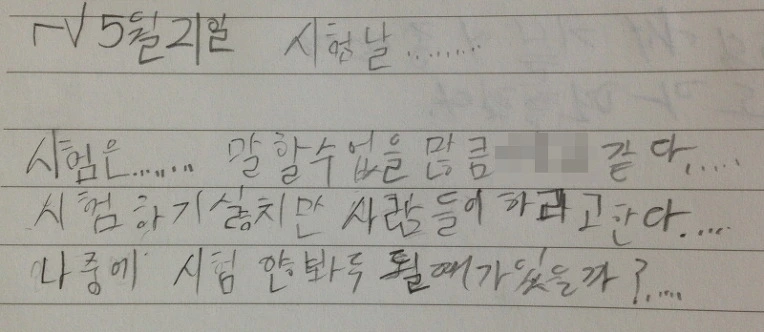 5월 21일 시험날........
시험은....... 말 할수 없을 많큼 같다.....
시험하기 싫치만 사람들이 하라고한다....
나중에 시험 안봐두 될때가있을까?....